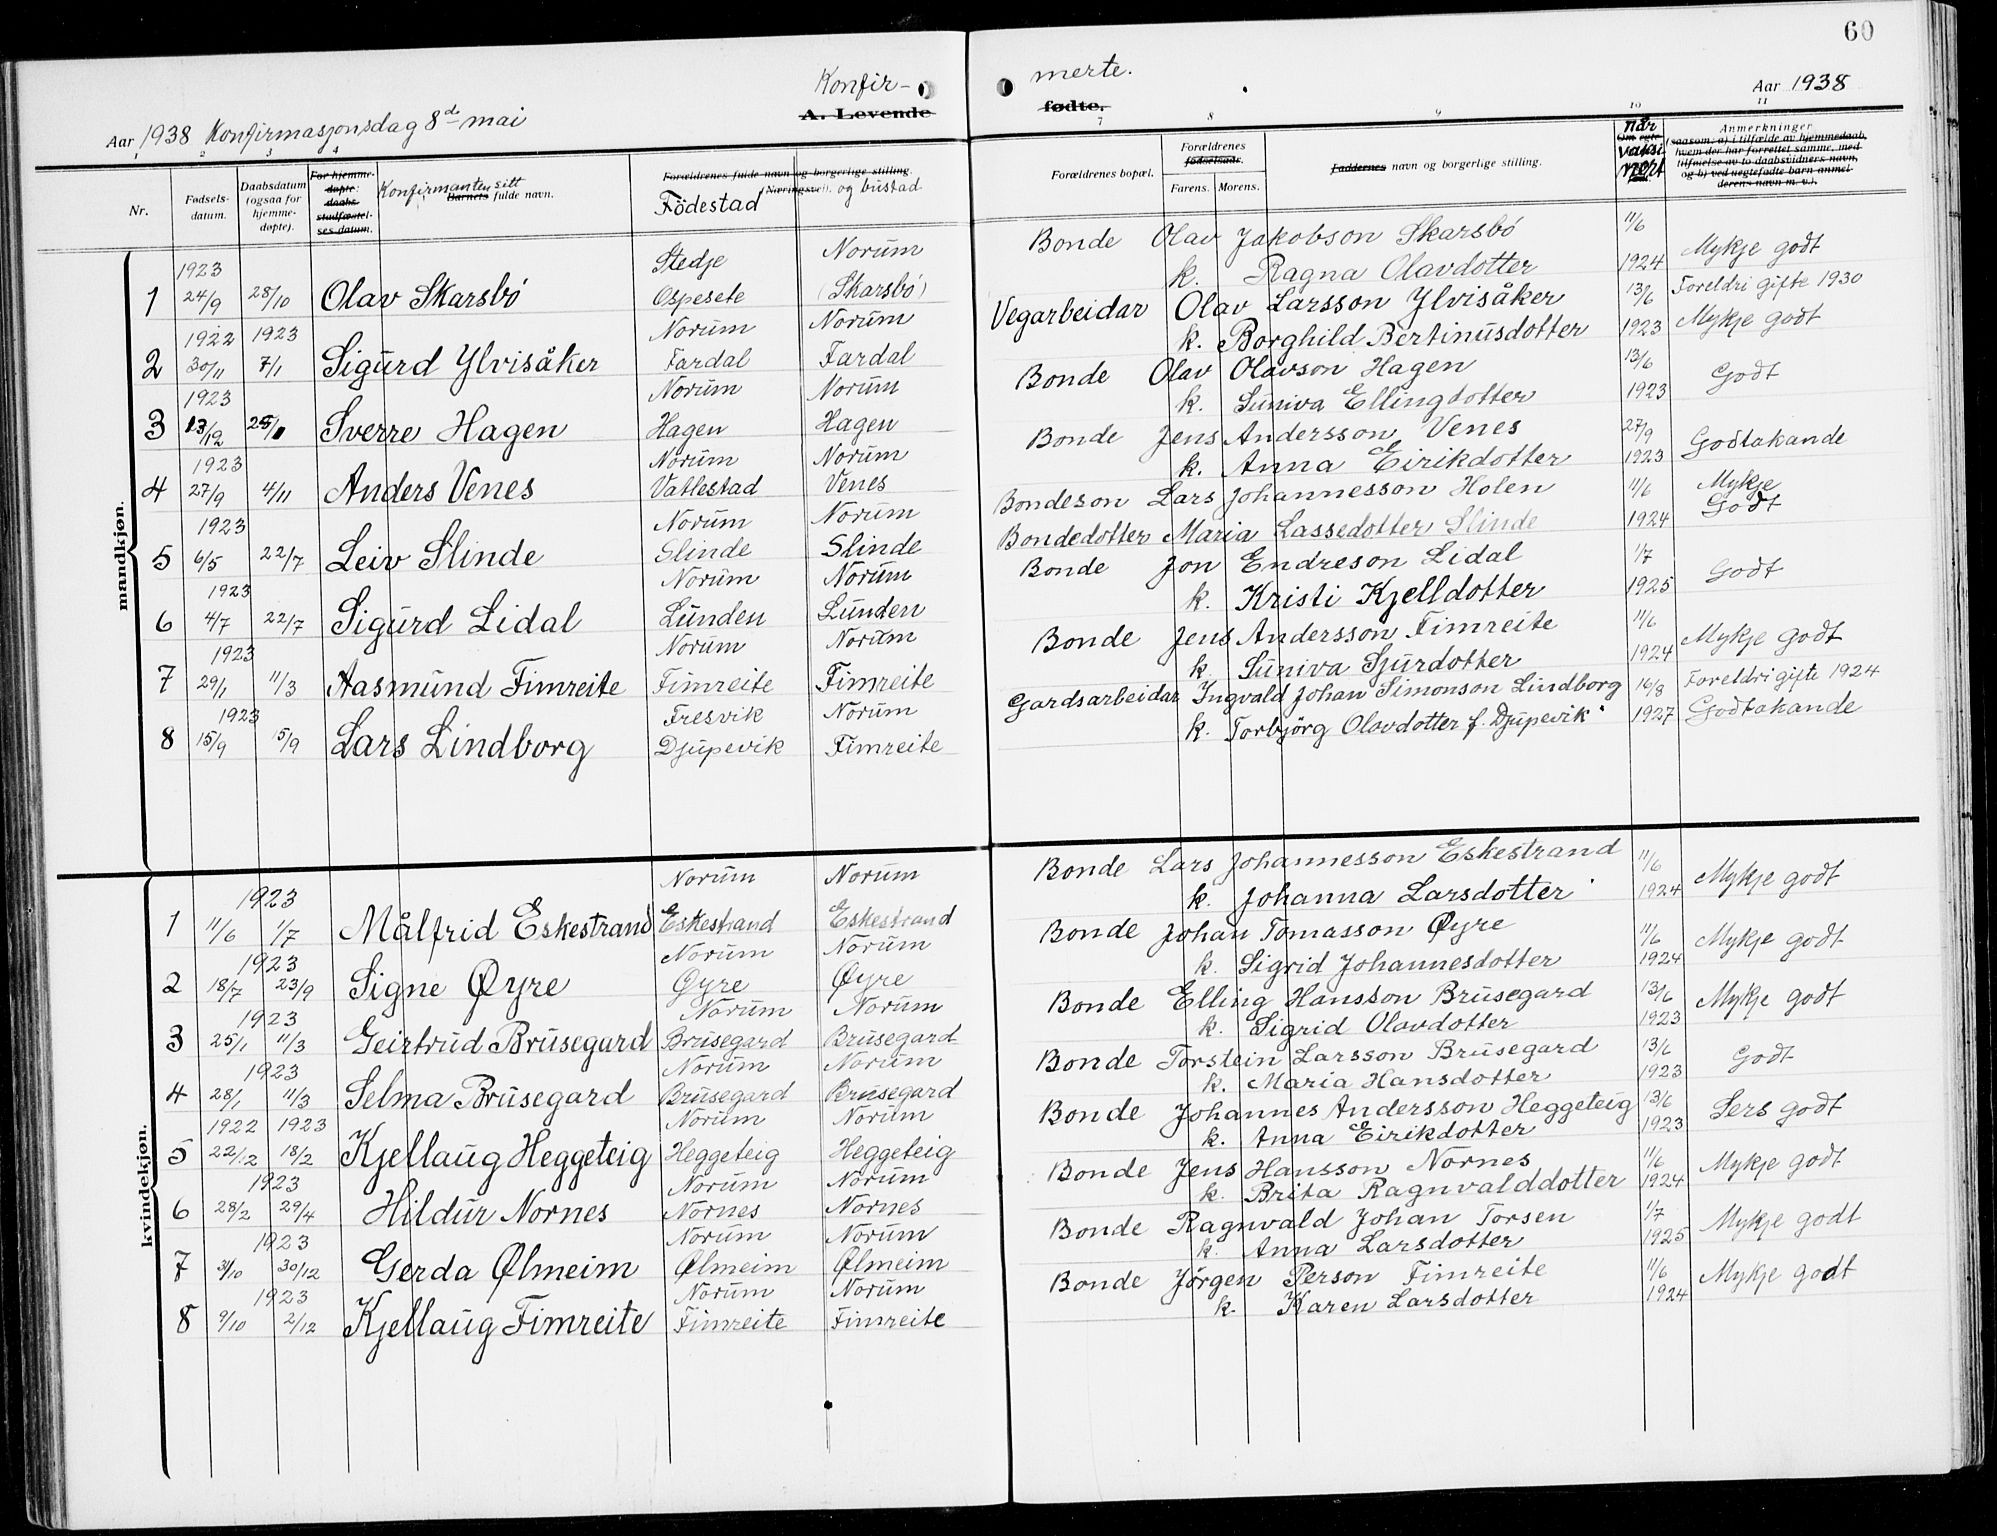 60
Konfir-
merte.
Aar 1938 Konfirmasjonsdag 8de mai
A. Levende
fødte.
Aar 1938
1 2 3 4 7 8 9 10 11
Nr.
Fødsels-
datum.
Daabsdatum
(ogsaa for
hjemme-
døpte).
For hjemme-
døpte:
daabs-
stadfæstel-
ses datum.
Konfirmanten sitt
Barnets fulde navn.
Forældrenes fulde navn og borgerlige stilling.
Födestad
Næringsvei. og bustad
Forældrenes bopæl.
Forældrenes
fødselsaar.
Farens. Morens.
Faddernes navn og borgerlige stilling.
når
vaksi-
nert
Anmerkninger
(saasom: a) i tilfælde av hjemmedaab,
hvem der har forrettet samme, med
tilføielse av to daabsvidners navn,
og b) ved uegtefødte barn anmel-
derens navn m. v.).
mandkjøn.
1923 Stedje Norum Bonde Olav Jakobson Skarsbö 11/6 Mykje godt
1 24/9 28/10 Olav Skarsbö Ospesete (Skarsbö) k. Ragna Olavdotter 1924
1922 1923 Norum Norum Vegarbeidar Olav Larsson Ylvisåker 13/6 Foreldri gifte 1930
2 30/11 7/1 Sigurd Ylvisåker Fardal Fardal k. Borghild Bertinusdotter 1923 Mykje godt
1923 Norum Norum Bonde Olav Olavson Hagen 13/6 Godt
3 13/12 25/1 Sverre Hagen Hagen Hagen k. Suniva Ellingdotter 1923
1923 Norum Norum Bonde Jens Andersson Venes 27/9 Godtakande
4 27/9 4/11 Anders Venes Vatlestad Venes k. Anna Eirikdotter 1923
1923 Norum Norum Bondeson Lars Johannesson Holen 11/6 Mykje
5 6/5 22/7 Leiv Slinde Slinde Slinde Bondedotter Maria Lassedotter Slinde 1924 Godt
1923 Norum Norum Bonde Jon Endreson Lidal 1/7 Godt
6 4/7 22/7 Sigurd Lidal Lunden Lunden k. Kristi Kjelldotter 1925
1923 Norum Norum Bonde Jens Andersson Fimreite 11/6 Mykje godt
7 29/1 11/3 Aasmund Fimreite Fimreite Fimreite k. Suniva Sjurdotter 1924
1923 Fresvik Norum Gardsarbeidar Ingvald Johan Simonson Lindborg 16/8 Foreldri gifte 1924
8 15/9 5/9 Lars Lindborg Djupevik Fimreite k. Torbjörg Olavdotter f. Djupevik 1927 Godtakande
kvindekjøn.
1923 Norum Norum Bonde Lars Johannesson Eskestrand 11/6 Mykje godt
1 11/6 1/7 Målfrid Eskestrand Eskestrand Eskestrand k. Johanna Larsdotter 1924
1923 Norum Norum Bonde Johan Tomasson Øyre 11/6 Mykje godt
2 18/7 23/9 Signe Øyre Øyre Øyre k. Sigrid Johannesdotter 1924
1923 Norum Norum Bonde Elling Hansson Brusegard 13/6 Mykje godt
3 25/1 11/3 Geirtrud Brusegard Brusegard Brusegard k. Sigrid Olavdotter 1923
1923 Norum Norum Bonde Torstein Larsson Brusegard 13/6 Godt
4 28/1 11/3 Selma Brusegard Brusegard Brusegard k. Maria Hansdotter 1923
1922 1923 Norum Norum Bonde Johannes Andersson Heggeteig 13/6 Sers godt
5 22/12 18/2 Kjellaug Heggeteig Heggeteig Heggeteig k. Anna Eirikdotter 1923
1923 Norum Norum Bonde Jens Hansson Nornes 11/6 Mykje godt
6 28/2 29/4 Hildur Nornes Nornes Nornes k. Brita Ragnvalddotter 1924
1923 Norum Norum Bonde Ragnvald Johan Torsen 1/7 Mykje godt
7 31/10 30/12 Gerda Ølmeim Ølmeim Ølmeim k. Anna Larsdotter 1925
1923 Norum Norum Bonde Jörgen Person Fimreite 11/6 Mykje godt
8 9/10 2/12 Kjellaug Fimreite Fimreite Fimreite k. Karen Larsdotter 1924